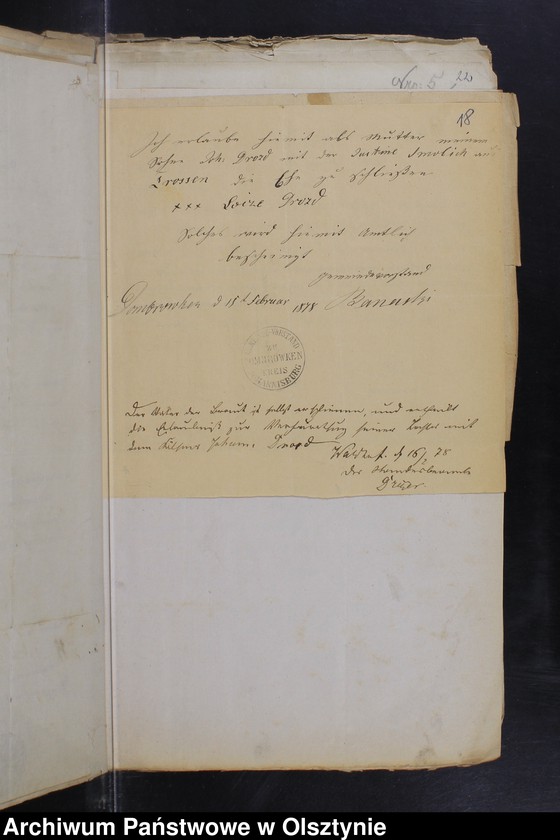 Nro: 5 22
18
Ich erlaube hiermit als Mutter meinem
Sohne Joh. Drozd mit der Smolich aus
Drossen die Ehe zu schließen
xxx Loise Drozd
Solches wird hiermit Amtlich
bescheinigt
Gemeindevorstand
Dombrowken d 15t Februar 1878 Banuski
VORSTAND
ZU
DOMBROWKEN
KREIS
JOHANNISBURG
Der Vater der Braut ist selbst erschienen, und ertheilt
die Erlaubniß zur Verheirathung seiner Tochter mit
dem Johann Drozd
d 16/2 78
Der Standesbeamte
Archiwum Państwowe w Olsztynie